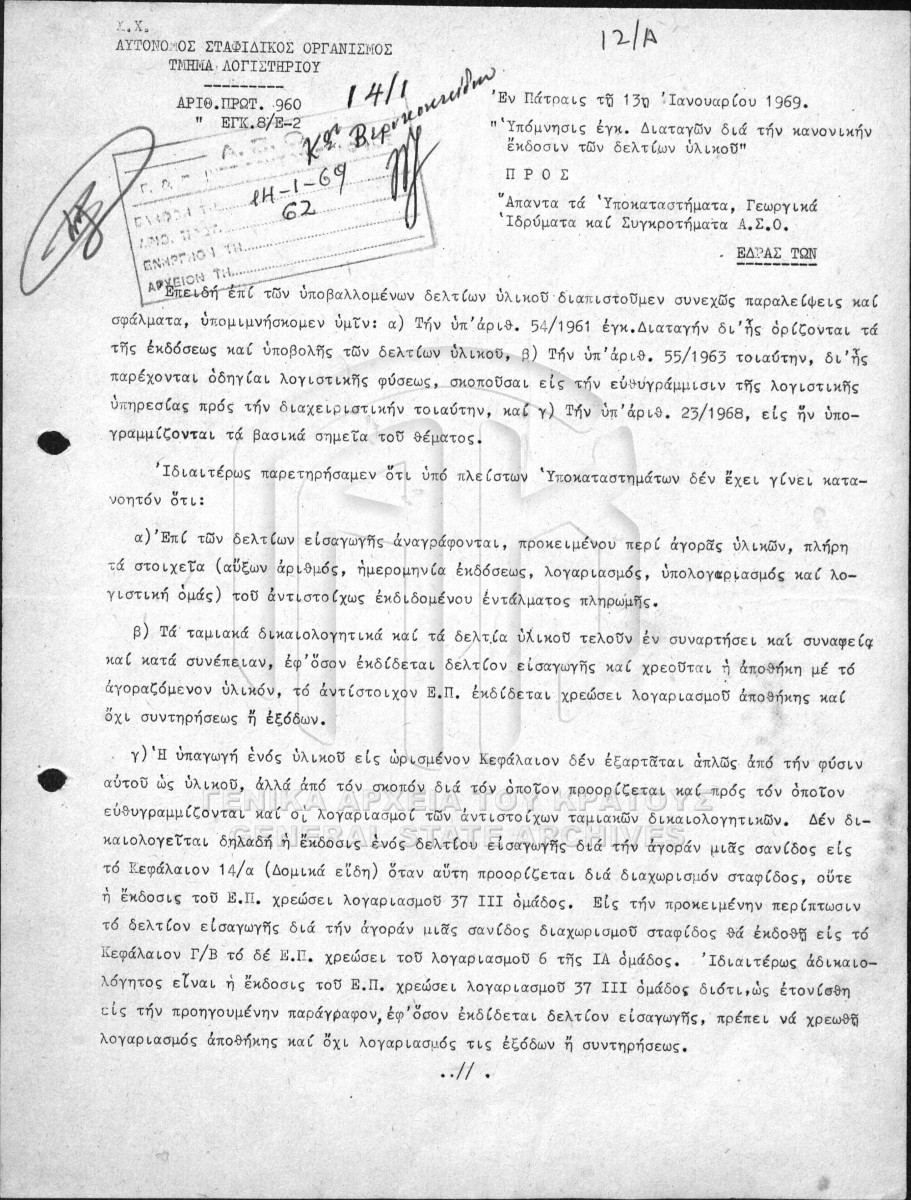 Χ.Χ.
12/Α
ΑΥΤΟΝΟΜΟΣ ΣΤΑΦΙΔΙΚΟΣ ΟΡΓΑΝΙΣΜΟΣ
ΤΜΗΜΑ ΛΟΓΙΣΤΗΡΙΟΥ
ΑΡΙΘ.ΠΡΩΤ. 960
" ΕΓΚ.8/Ε-2
14/1
Ἐν Πάτραις τῇ 13ῃ Ἰανουαρίου 1969.
"Ὑπόμνησις ἐγκ. Διαταγῶν διά τήν κανονικήν
ἔκδοσιν τῶν δελτίων ὑλικοῦ"
Π Ρ Ο Σ
Ἅπαντα τά Ὑποκαταστήματα, Γεωργικά
Ἱδρύματα καί Συγκροτήματα Α.Σ.Ο.
ΕΔΡΑΣ ΤΩΝ
Α.Σ.Ο.
14-1-69
62
ΑΡΙΘ. ΠΡΩΤ.
ΕΝΗΡΓΗΘΗ ΤΗ
ΑΡΧΕΙΟΝ ΤΗ
Ἐπειδή ἐπί τῶν ὑποβαλλομένων δελτίων ὑλικοῦ διαπιστοῦμεν συνεχῶς παραλείψεις καί
σφάλματα, ὑπομιμνήσκομεν ὑμῖν: α) Τήν ὑπ'ἀριθ. 54/1961 ἐγκ.Διαταγήν δι'ἧς ὁρίζονται τά
τῆς ἐκδόσεως καί ὑποβολῆς τῶν δελτίων ὑλικοῦ, β) Τήν ὑπ'ἀριθ. 55/1963 τοιαύτην, δι'ἧς
παρέχονται ὁδηγίαι λογιστικῆς φύσεως, σκοποῦσαι εἰς τήν εὐθυγράμμισιν τῆς λογιστικῆς
ὑπηρεσίας πρός τήν διαχειριστικήν τοιαύτην, καί γ) Τήν ὑπ'ἀριθ. 23/1968, εἰς ἥν ὑπο-
γραμμίζονται τά βασικά σημεῖα τοῦ θέματος.
Ἰδιαιτέρως παρετηρήσαμεν ὅτι ὑπό πλείστων Ὑποκαταστημάτων δέν ἔχει γίνει κατα-
νοητόν ὅτι:
α)Ἐπί τῶν δελτίων εἰσαγωγῆς ἀναγράφονται, προκειμένου περί ἀγορᾶς ὑλικῶν, πλήρη
τά στοιχεῖα (αὔξων ἀριθμός, ἡμερομηνία ἐκδόσεως, λογαριασμός, ὑπολογαριασμός καί λο-
γιστική ὁμάς) τοῦ ἀντιστοίχως ἐκδιδομένου ἐντάλματος πληρωμῆς.
β) Τά ταμιακά δικαιολογητικά καί τά δελτία ὑλικοῦ τελοῦν ἐν συναρτήσει καί συναφείᾳ
καί κατά συνέπειαν, ἐφ'ὅσον ἐκδίδεται δελτίον εἰσαγωγῆς καί χρεοῦται ἡ ἀποθήκη μέ τό
ἀγοραζόμενον ὑλικόν, τό ἀντίστοιχον Ε.Π. ἐκδίδεται χρεώσει λογαριασμοῦ ἀποθήκης καί
ὄχι συντηρήσεως ἤ ἐξόδων.
γ)Ἡ ὑπαγωγή ἑνός ὑλικοῦ εἰς ὡρισμένον Κεφάλαιον δέν ἐξαρτᾶται ἁπλῶς ἀπό τήν φύσιν
αὐτοῦ ὡς ὑλικοῦ, ἀλλά ἀπό τόν σκοπόν διά τόν ὁποῖον προορίζεται καί πρός τόν ὁποῖον
εὐθυγραμμίζονται καί οἱ λογαριασμοί τῶν ἀντιστοίχων ταμιακῶν δικαιολογητικῶν. Δέν δι-
καιολογεῖται δηλαδή ἡ ἔκδοσις ἑνός δελτίου εἰσαγωγῆς διά τήν ἀγοράν μιᾶς σανίδος εἰς
τό Κεφάλαιον 14/α (Δομικά εἴδη) ὅταν αὕτη προορίζεται διά διαχωρισμόν σταφίδος, οὔτε
ἡ ἔκδοσις τοῦ Ε.Π. χρεώσει λογαριασμοῦ 37 ΙΙΙ ὁμάδος. Εἰς τήν προκειμένην περίπτωσιν
τό δελτίον εἰσαγωγῆς διά τήν ἀγοράν μιᾶς σανίδος διαχωρισμοῦ σταφίδος θά ἐκδοθῇ εἰς τό
Κεφάλαιον Γ/Β τό δέ Ε.Π. χρεώσει τοῦ λογαριασμοῦ 6 τῆς ΙΑ ὁμάδος. Ἰδιαιτέρως ἀδικαιο-
λόγητος εἶναι ἡ ἔκδοσις τοῦ Ε.Π. χρεώσει λογαριασμοῦ 37 ΙΙΙ ὁμάδος διότι,ὡς ἐτονίσθη
εἰς τήν προηγουμένην παράγραφον,ἐφ'ὅσον ἐκδίδεται δελτίον εἰσαγωγῆς, πρέπει νά χρεωθῇ
λογαριασμός ἀποθήκης καί ὄχι λογαριασμός τις ἐξόδων ἤ συντηρήσεως.
..// .
ΓΕΝΙΚΑ ΑΡΧΕΙΑ ΤΟΥ ΚΡΑΤΟΥΣ
GENERAL STATE ARCHIVES